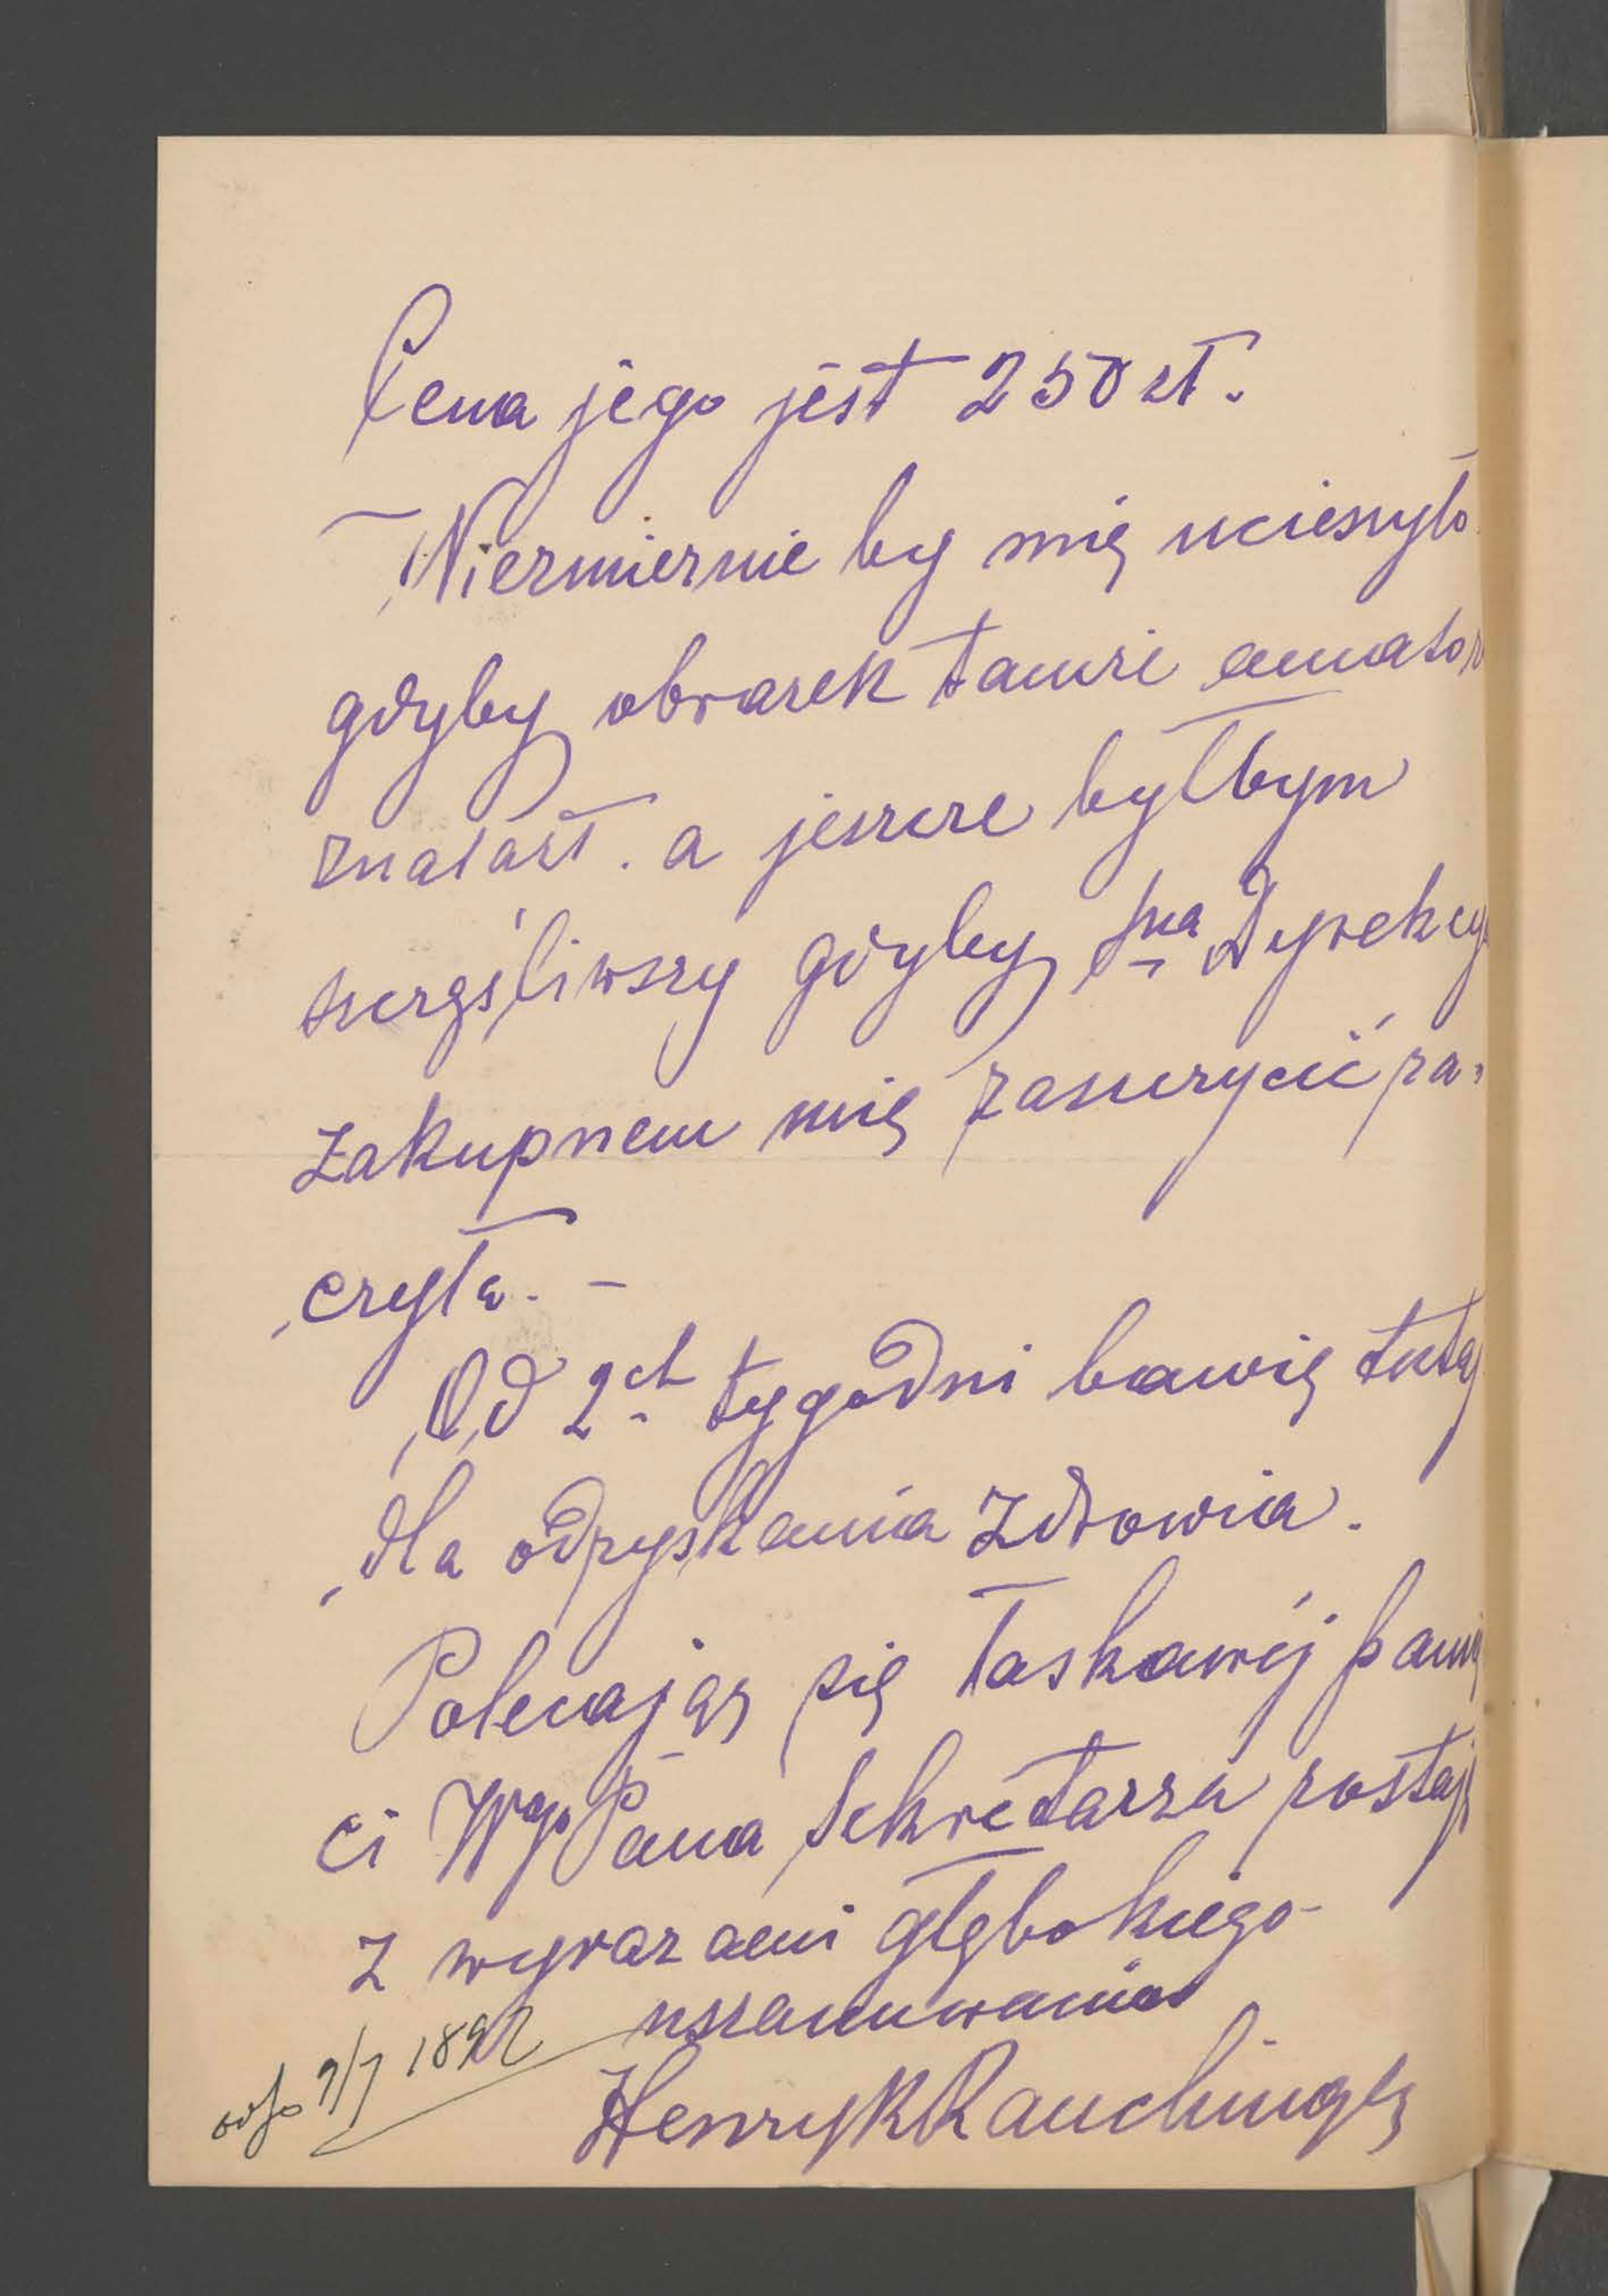 Cena jego jest 250 zł.
Niezmiernie by mię ucieszyło
gdyby obrazek tamże amator
znalazł. a jeszcze byłbym
szczęśliwszy gdyby Sna Dyrekcy
zakupnem mię zaszczycić ra-
czyła. -
Od 2ch tygodni bawię tuta
dla odzyskania zdrowia.
Polecając się łaskawéj pamię
ci Wgo Pana Sekretarza zostaję
z wyrazami głębokiego
uszanowania
Henryk Rauchinger
odp 9/7 1892